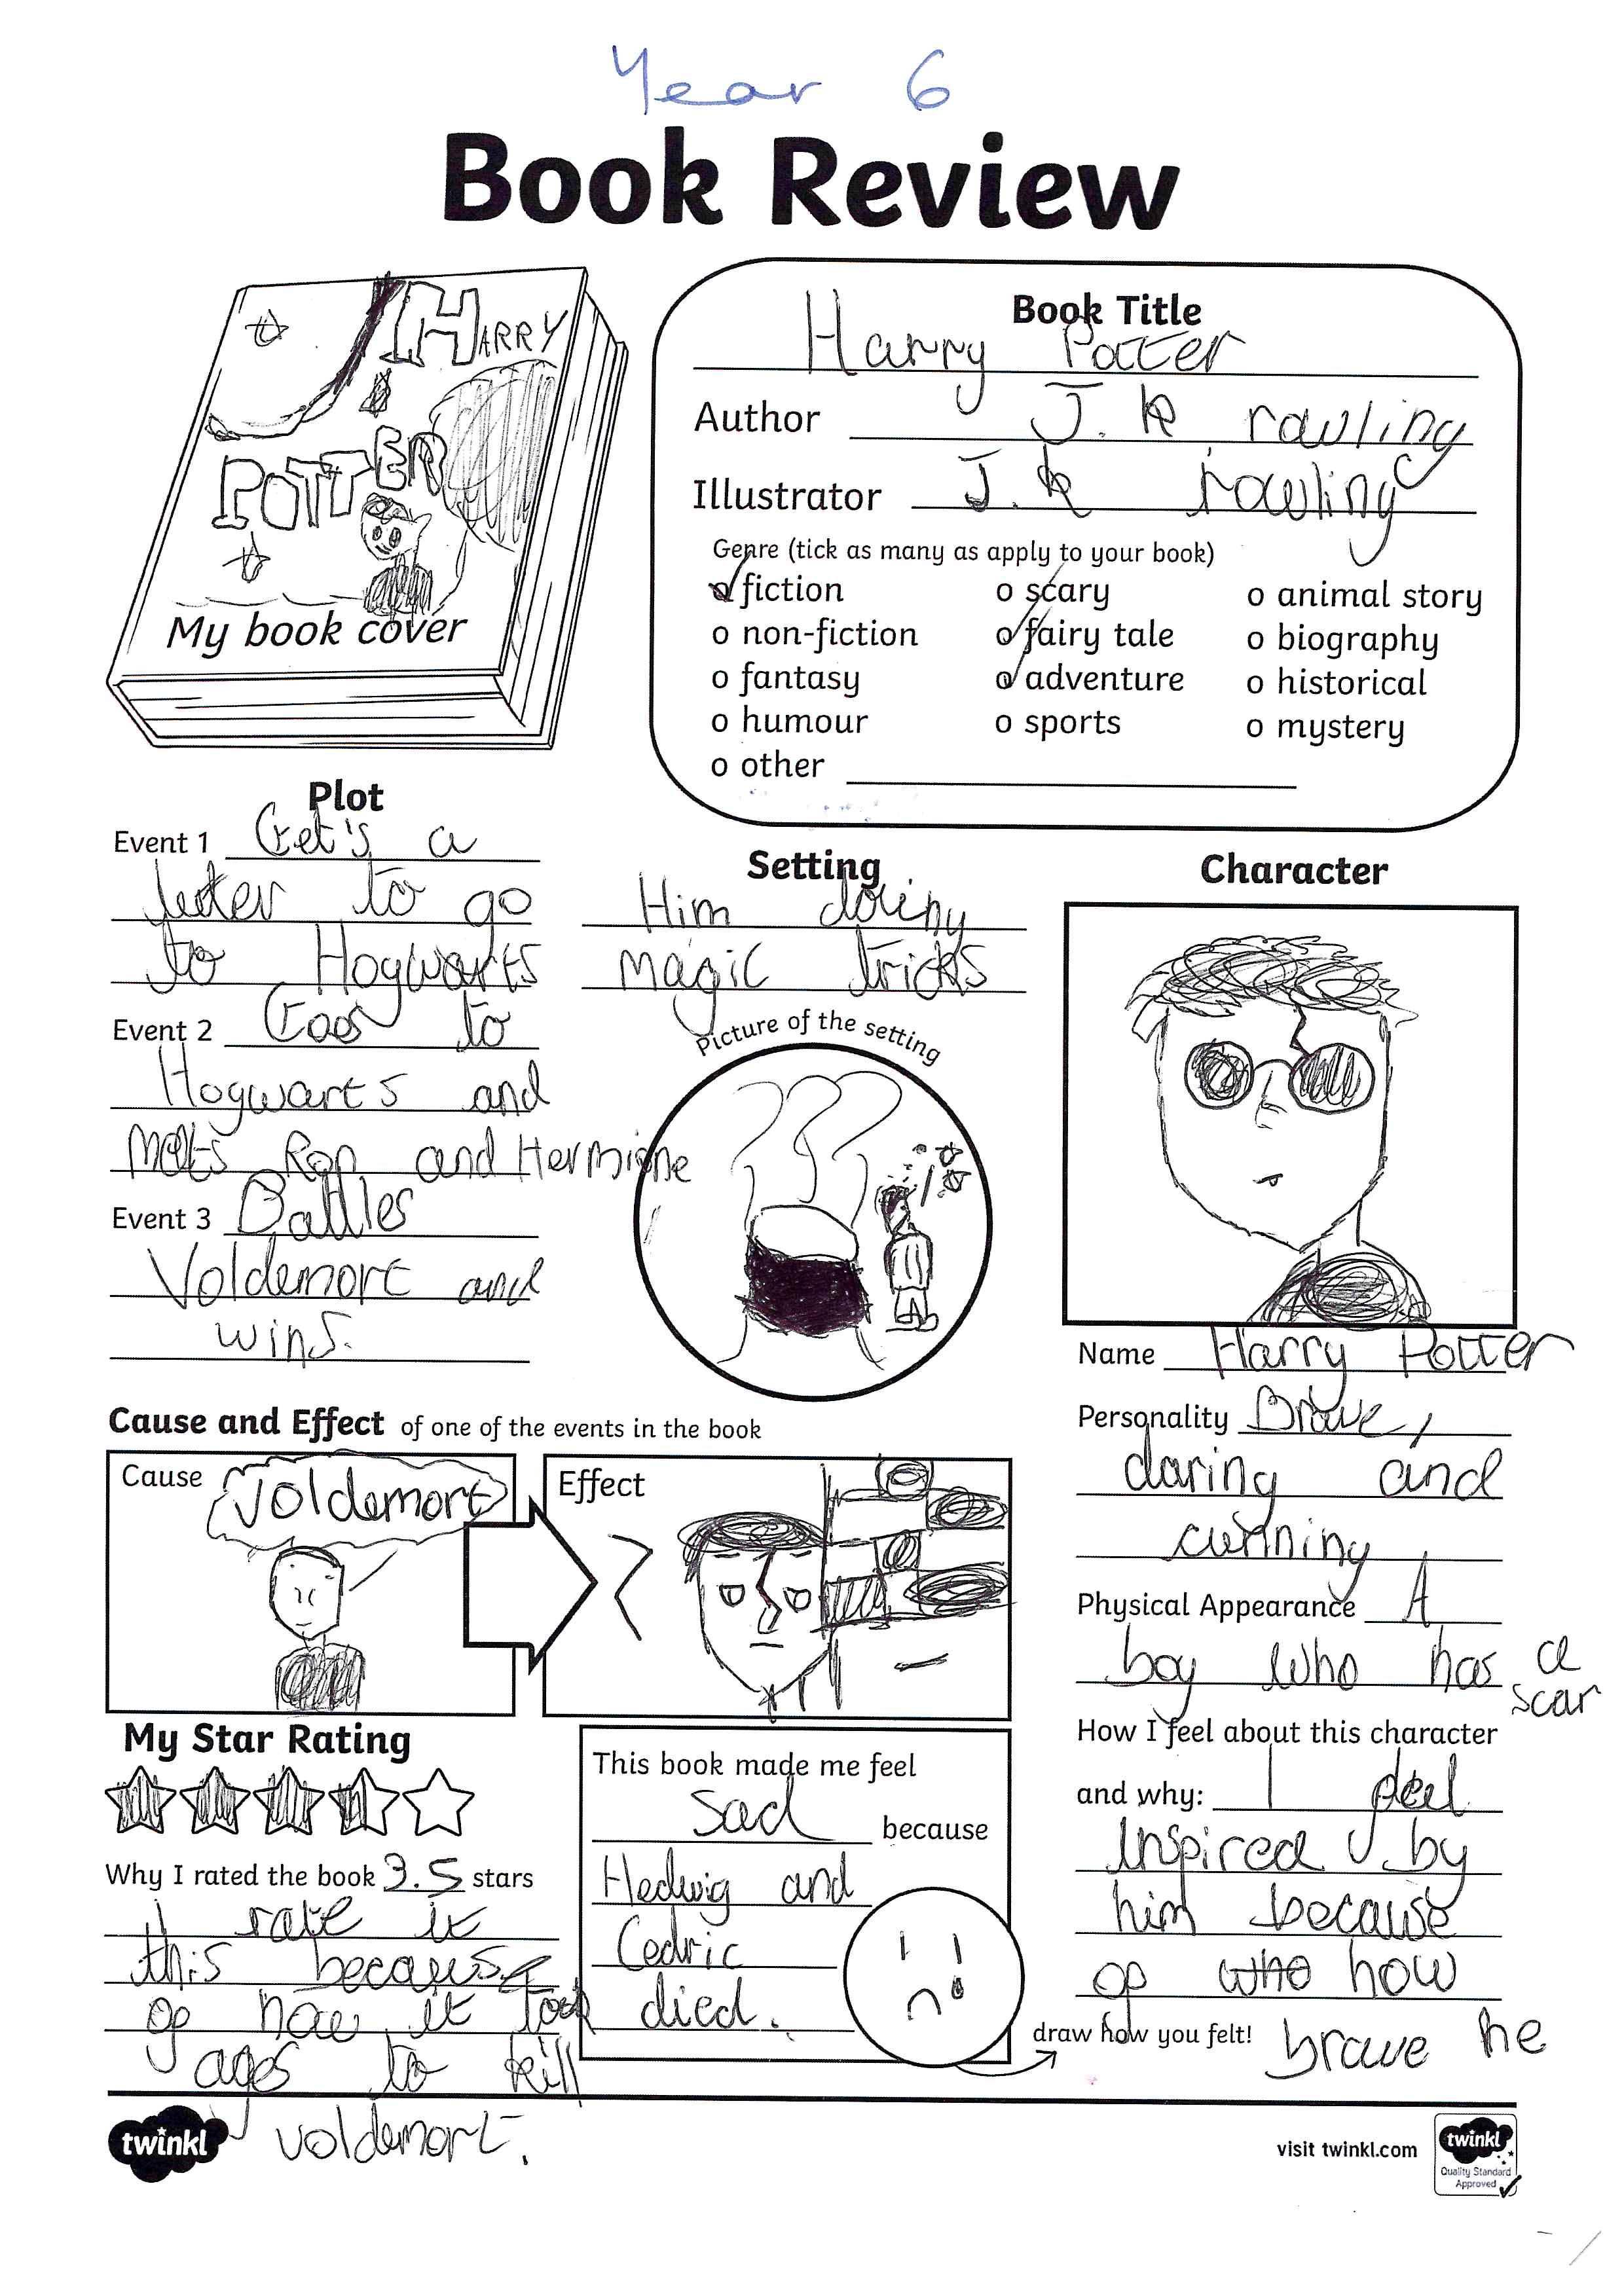 Year 6
Book Review
HARRY
POTTER
My book cover
Book Title
Harry Potter
Author J.k rowling
Illustrator J.k rowling
Genre (tick as many as apply to your book)
o fiction
o non-fiction
o fantasy
o humour
o other
o scary
o fairy tale
o adventure
o sports
o animal story
o biography
o historical
o mystery
Plot
Event 1 Get's a
letter to go
to Hogwarts
Event 2 Goes to
Hogwarts and
Meets Ron and Hermione
Event 3 Battles
Voldemort and
wins.
Setting
Him doing
magic tricks
Picture of the setting
Character
Name Harry Potter
Personality Brave,
daring and
cunning
Physical Appearance A
boy who has a
scar
How I feel about this character
and why: I feel
Inspired by
him because
of who how
brave he
Cause and Effect of one of the events in the book
Cause
Voldemort
Effect
My Star Rating
Why I rated the book 3.5 stars
I rate it
this because
of how it took
ages to kill
voldemort.
This book made me feel
sad because
Hedwig and
Cedric
died.
draw how you felt!
twinkl
visit twinkl.com
twinkl
Quality Standard
Approved